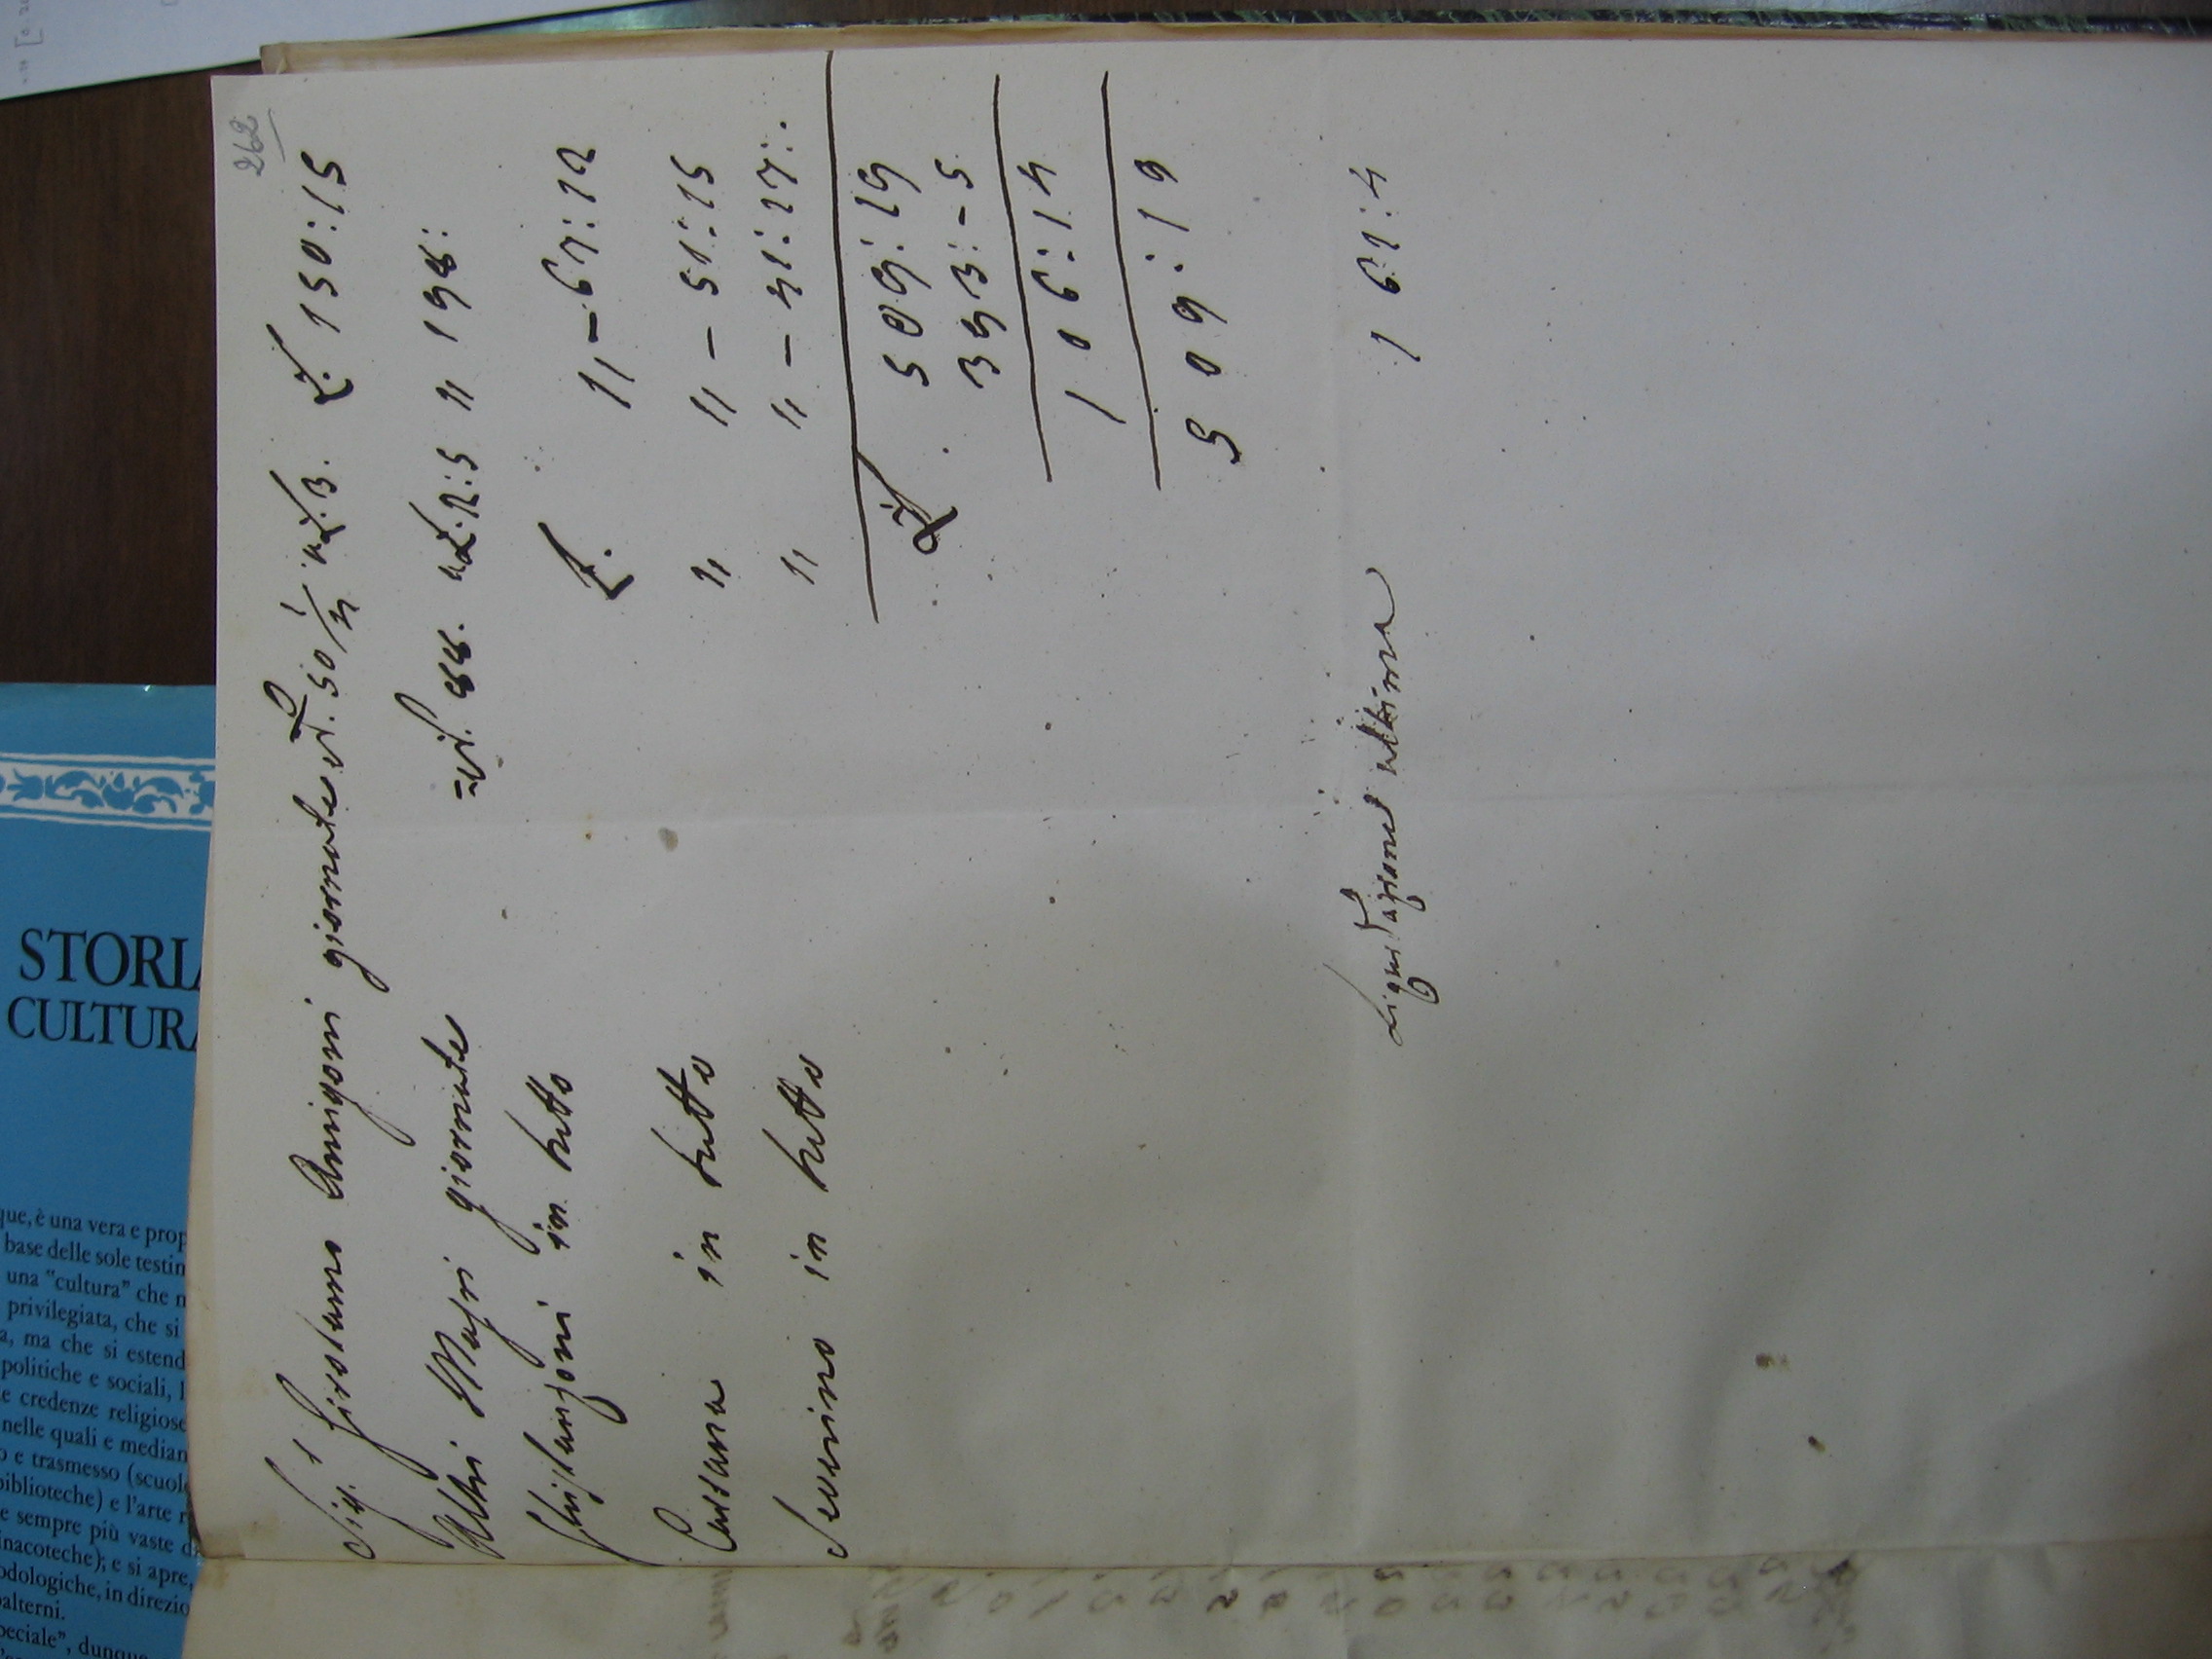 262
Sig.r Girolamo Amigoni giornate n.o 50 1/4 a £. 3. £. 150:15
Altri Mazri giornate = n. 88. a £. 2:5 " 198:
Ghislanzoni in tutto £. " - 67:12
Cassana in tutto " " - 51:15
Severino in tutto " " - 41:17:.
£. 509:19
393:-5
106:14
509:19
Liquidazione ultima 161:4
STORIA
CULTURA
que, è una vera e prop
base delle sole testin
una "cultura" che n
privilegiata, che si
a, ma che si estend
politiche e sociali, l
e credenze religiose
nelle quali e median
o e trasmesso (scuole
biblioteche) e l'arte r
e sempre più vaste d
inacoteche); e si apre,
odologiche, in direzio
alterni.
peciale", dunque